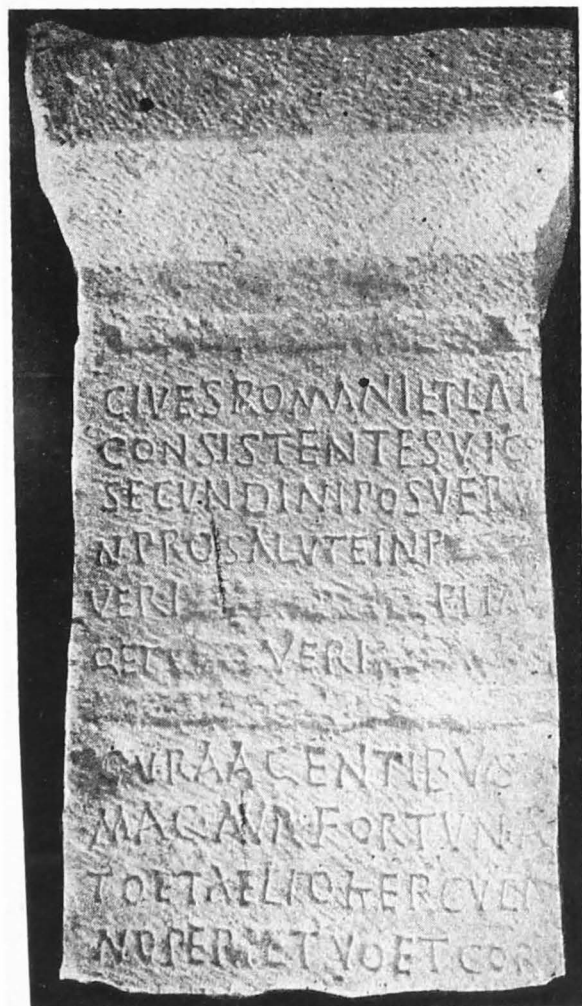 CIVES ROMANI ET LAI
CONSISTENTES VIC
SECUNDINI POSVER
N PRO SALVTE INP
VERI
QET VERI
CVRA AGENTIBVS
MAG AVR FORTVNA
TO ET AELIO HERCVLA
NO PERPETVO ET COR